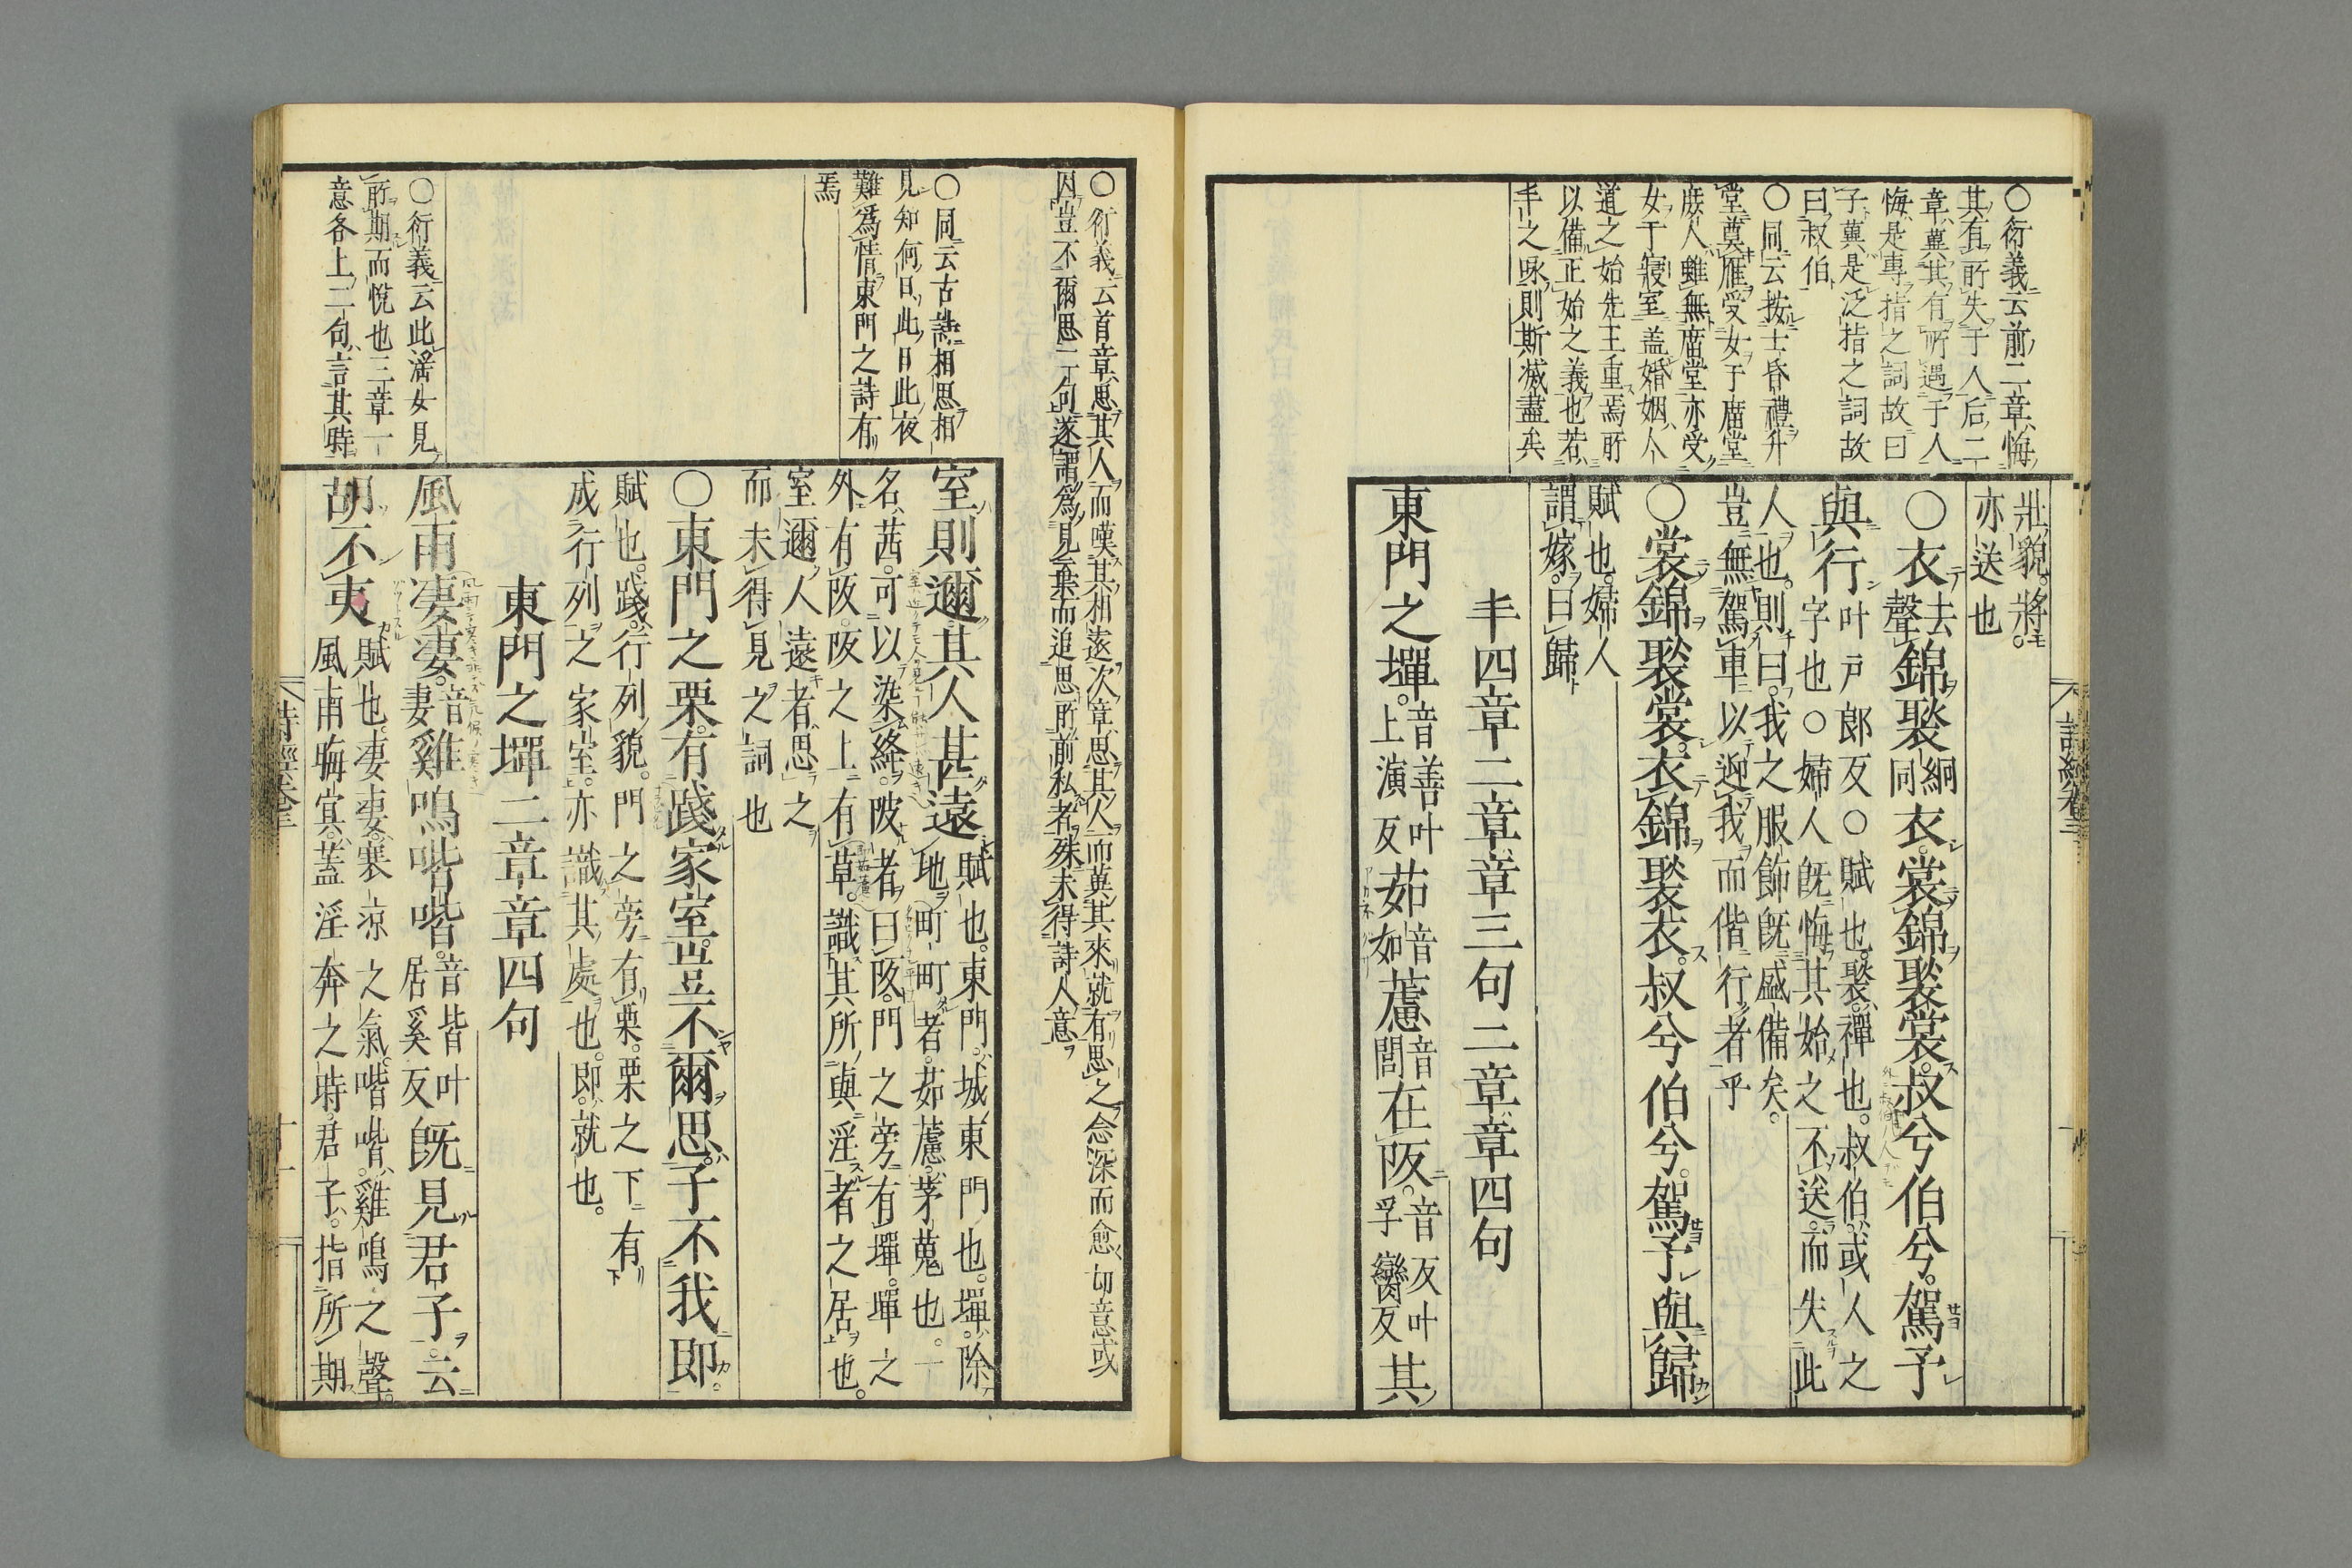 ○衍義云前二章悔
其有所失于人后二
章冀其有所遇于人
悔是專指之詞故曰
子冀是泛指之詞故
曰叔伯
○同云按士昏禮升
堂奠雁受女于廣堂
庶人雖無廣堂亦受
女于寢室蓋婚姻人
道之始先王重焉所
以備正始之義也若
丰之詠則斯滅盡矣
壯貌。將。
亦送也
○衣去聲錦褧絅同衣。裳錦褧裳。叔兮伯兮。駕予
與行叶戸郎反○賦也。褧。襌也。叔伯。或人之
字也○婦人旣悔其始之不送。而失此
人也。則曰。我之服飾旣盛備矣。
豈無駕車以迎我而偕行者乎
○裳錦褧裳。衣錦褧衣。叔兮伯兮。駕予與歸
賦也。婦人
謂嫁。曰歸
丰四章二章章三句二章章四句
東門之墠。音善叶上演反茹音如藘音閭在阪。音反叶孚臠反其
詩經卷三
○衍義云首章思其人而嘆其相遠次章思其人而冀其來就有思之念深而愈切意或
因豈不爾思一句遂謂爲見棄而追思所前私者殊未得詩人意
○同云古詩相思相
見知何日此日此夜
難爲情東門之詩有
焉
○衍義云此淫女見
所期而悅也三章一
意各上二句言其時
室則邇其人甚遠賦也。東門。城東門也。墠。除
地町町者。茹藘。茅蒐也。一
名茜。可以染絳。陂者曰阪。門之旁有墠。墠之
外有阪。阪之上有草。識其所與淫者之居也。
室邇人遠者思之
而未得見之詞也
○東門之栗。有踐家室。豈不爾思。子不我即。
賦也。踐。行列貌。門之旁有栗。栗之下有
成行列之家室。亦識其處也。即。就也。
東門之墠二章章四句
風雨淒淒。音妻雞鳴喈喈。音皆叶居奚反旣見君子。云
胡不夷賦也。淒淒。寒涼之氣。喈喈。雞鳴之聲。
風雨晦冥。蓋淫奔之時。君子。指所期
詩經卷三
十一